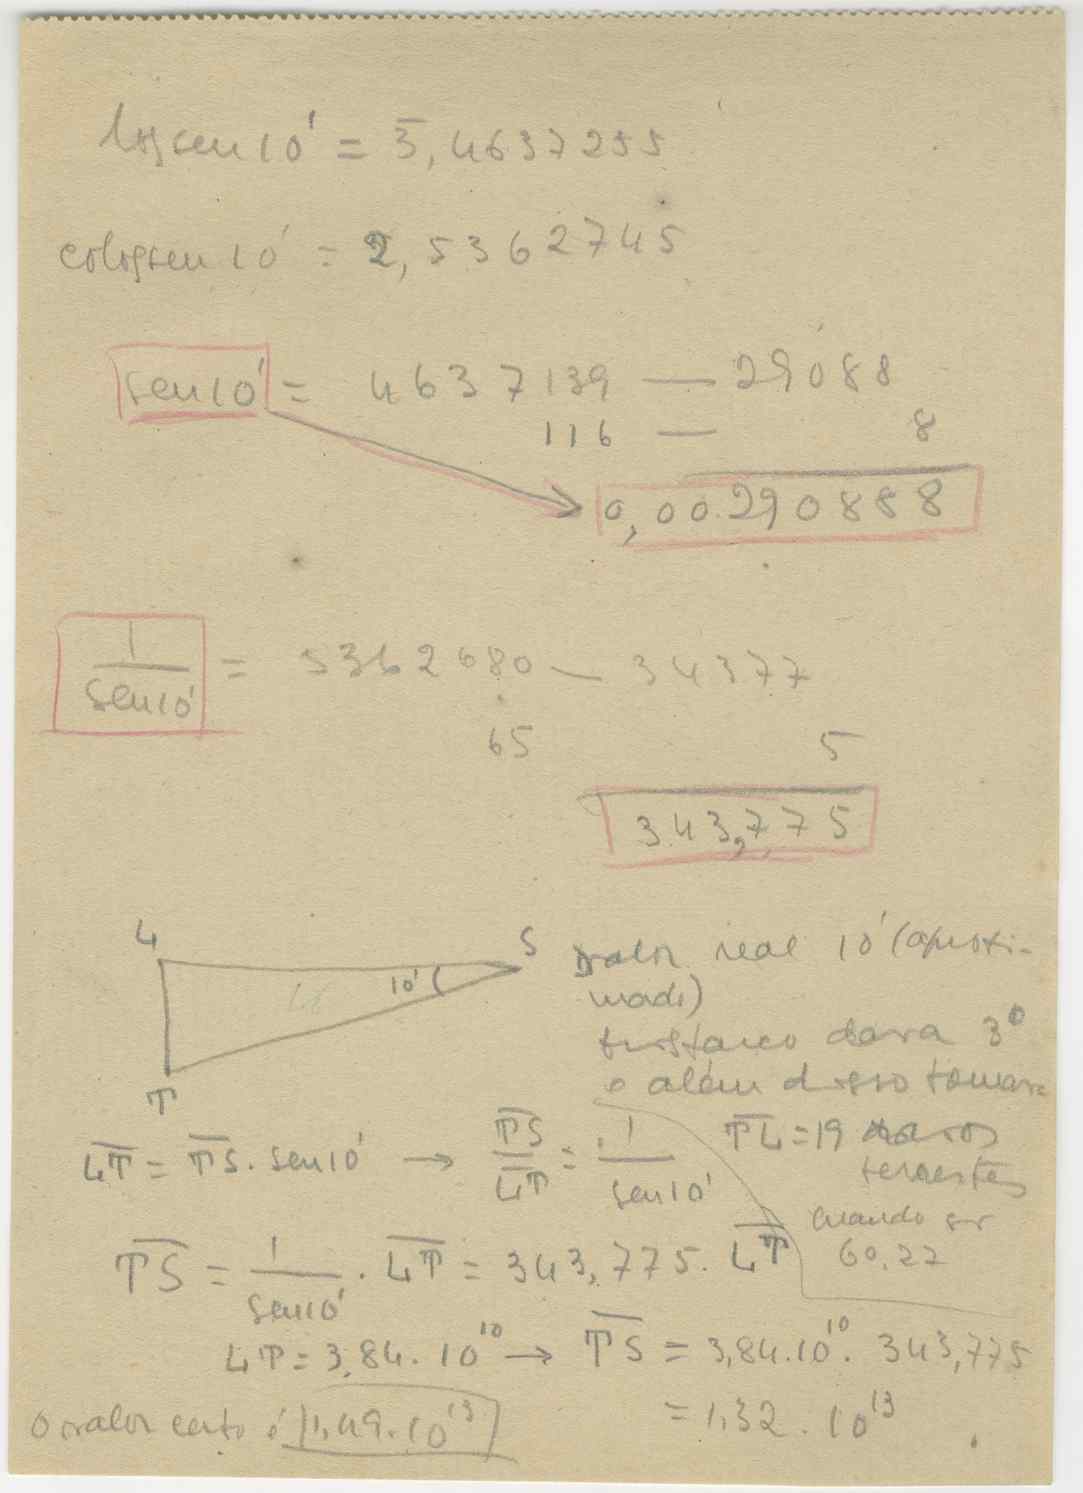 log sen 10' = 3̅,4637255
colog sen 10' = 2,5362745
sen 10' = 4637139 — 29088
116 — 8
0,00.290888
1/sen 10' = 5362680 — 34377
65 5
343,775
L S
10'
T
valor real 10' (aproxi-
mado)
dava 3°
e além disso tomava
T̅L̅ = 19
terrestres
quando é
60.27
L̅T̅ = T̅S̅. sen 10' → T̅S̅/L̅T̅ = 1/sen 10'
T̅S̅ = 1/sen 10' . L̅T̅ = 343,775. L̅T̅
LT = 3,84.10¹⁰ → T̅S̅ = 3,84.10¹⁰. 343,775
= 1,32 . 10¹³
O valor certo é 1,49.10¹³